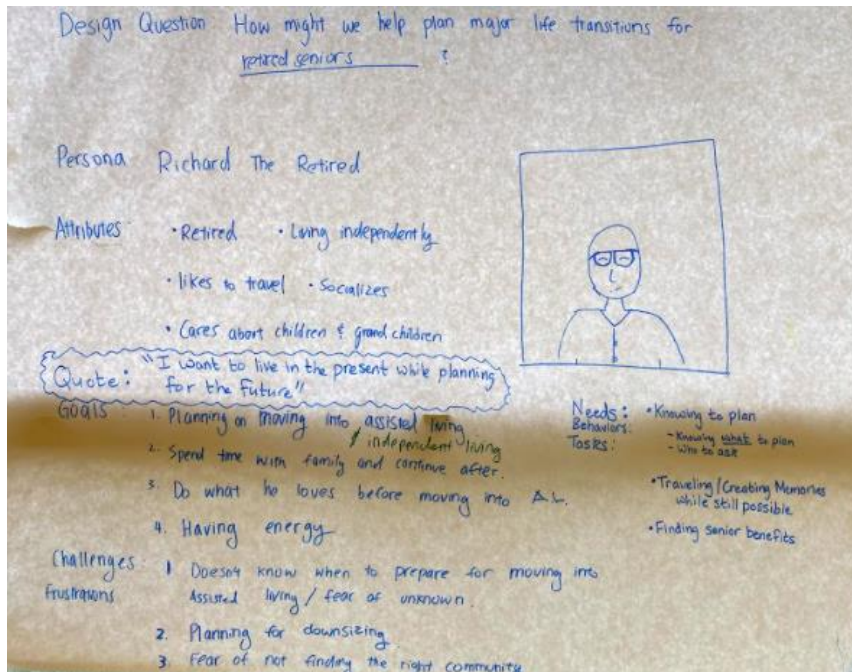 Design Question How might we help plan major life transitions for
retired seniors ?
Persona Richard The Retired
Attributes • Retired • Living independently
• likes to travel • Socializes
• Cares abort children & grand children
Quote: "I want to live in the present while planning
for the future"
Goals 1. Planning on moving into assisted living
/ independent living
2. Spend time with family and continue after.
3. Do what he loves before moving into A.L.
4. Having energy
Needs: • Knowing to plan
Behaviors:
- Knowing what to plan
Tasks:
- Who to ask
• Traveling/Creating Memories
while still possible
• Finding senior benefits
Challenges 1 Doesn't know when to prepare for moving into
Frustrations Assisted living / fear of unknown.
2. Planning for downsizing
3. Fear of not finding the right community